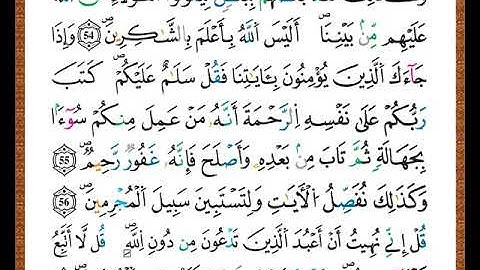 عَلَيْهِم مِّنۢ بَيْنِنَا ۗ أَلَيْسَ ٱللَّهُ بِأَعْلَمَ بِٱلشَّٰكِرِينَ 54 وَإِذَا
جَآءَكَ ٱلَّذِينَ يُؤْمِنُونَ بِـَٔايَٰتِنَا فَقُلْ سَلَٰمٌ عَلَيْكُمْ ۖ كَتَبَ
رَبُّكُمْ عَلَىٰ نَفْسِهِ ٱلرَّحْمَةَ أَنَّهُۥ مَنْ عَمِلَ مِنكُمْ سُوٓءًۢا
بِجَهَٰلَةٍ ثُمَّ تَابَ مِنۢ بَعْدِهِۦ وَأَصْلَحَ فَإِنَّهُۥ غَفُورٌ رَّحِيمٌ 55
وَكَذَٰلِكَ نُفَصِّلُ ٱلْأَيَٰتِ وَلِتَسْتَبِينَ سَبِيلَ ٱلْمُجْرِمِينَ 56
قُلْ إِنِّى نُهِيتُ أَنْ أَعْبُدَ ٱلَّذِينَ تَدْعُونَ مِن دُونِ ٱللَّهِ ۚ قُل لَّآ أَتَّبِعُ